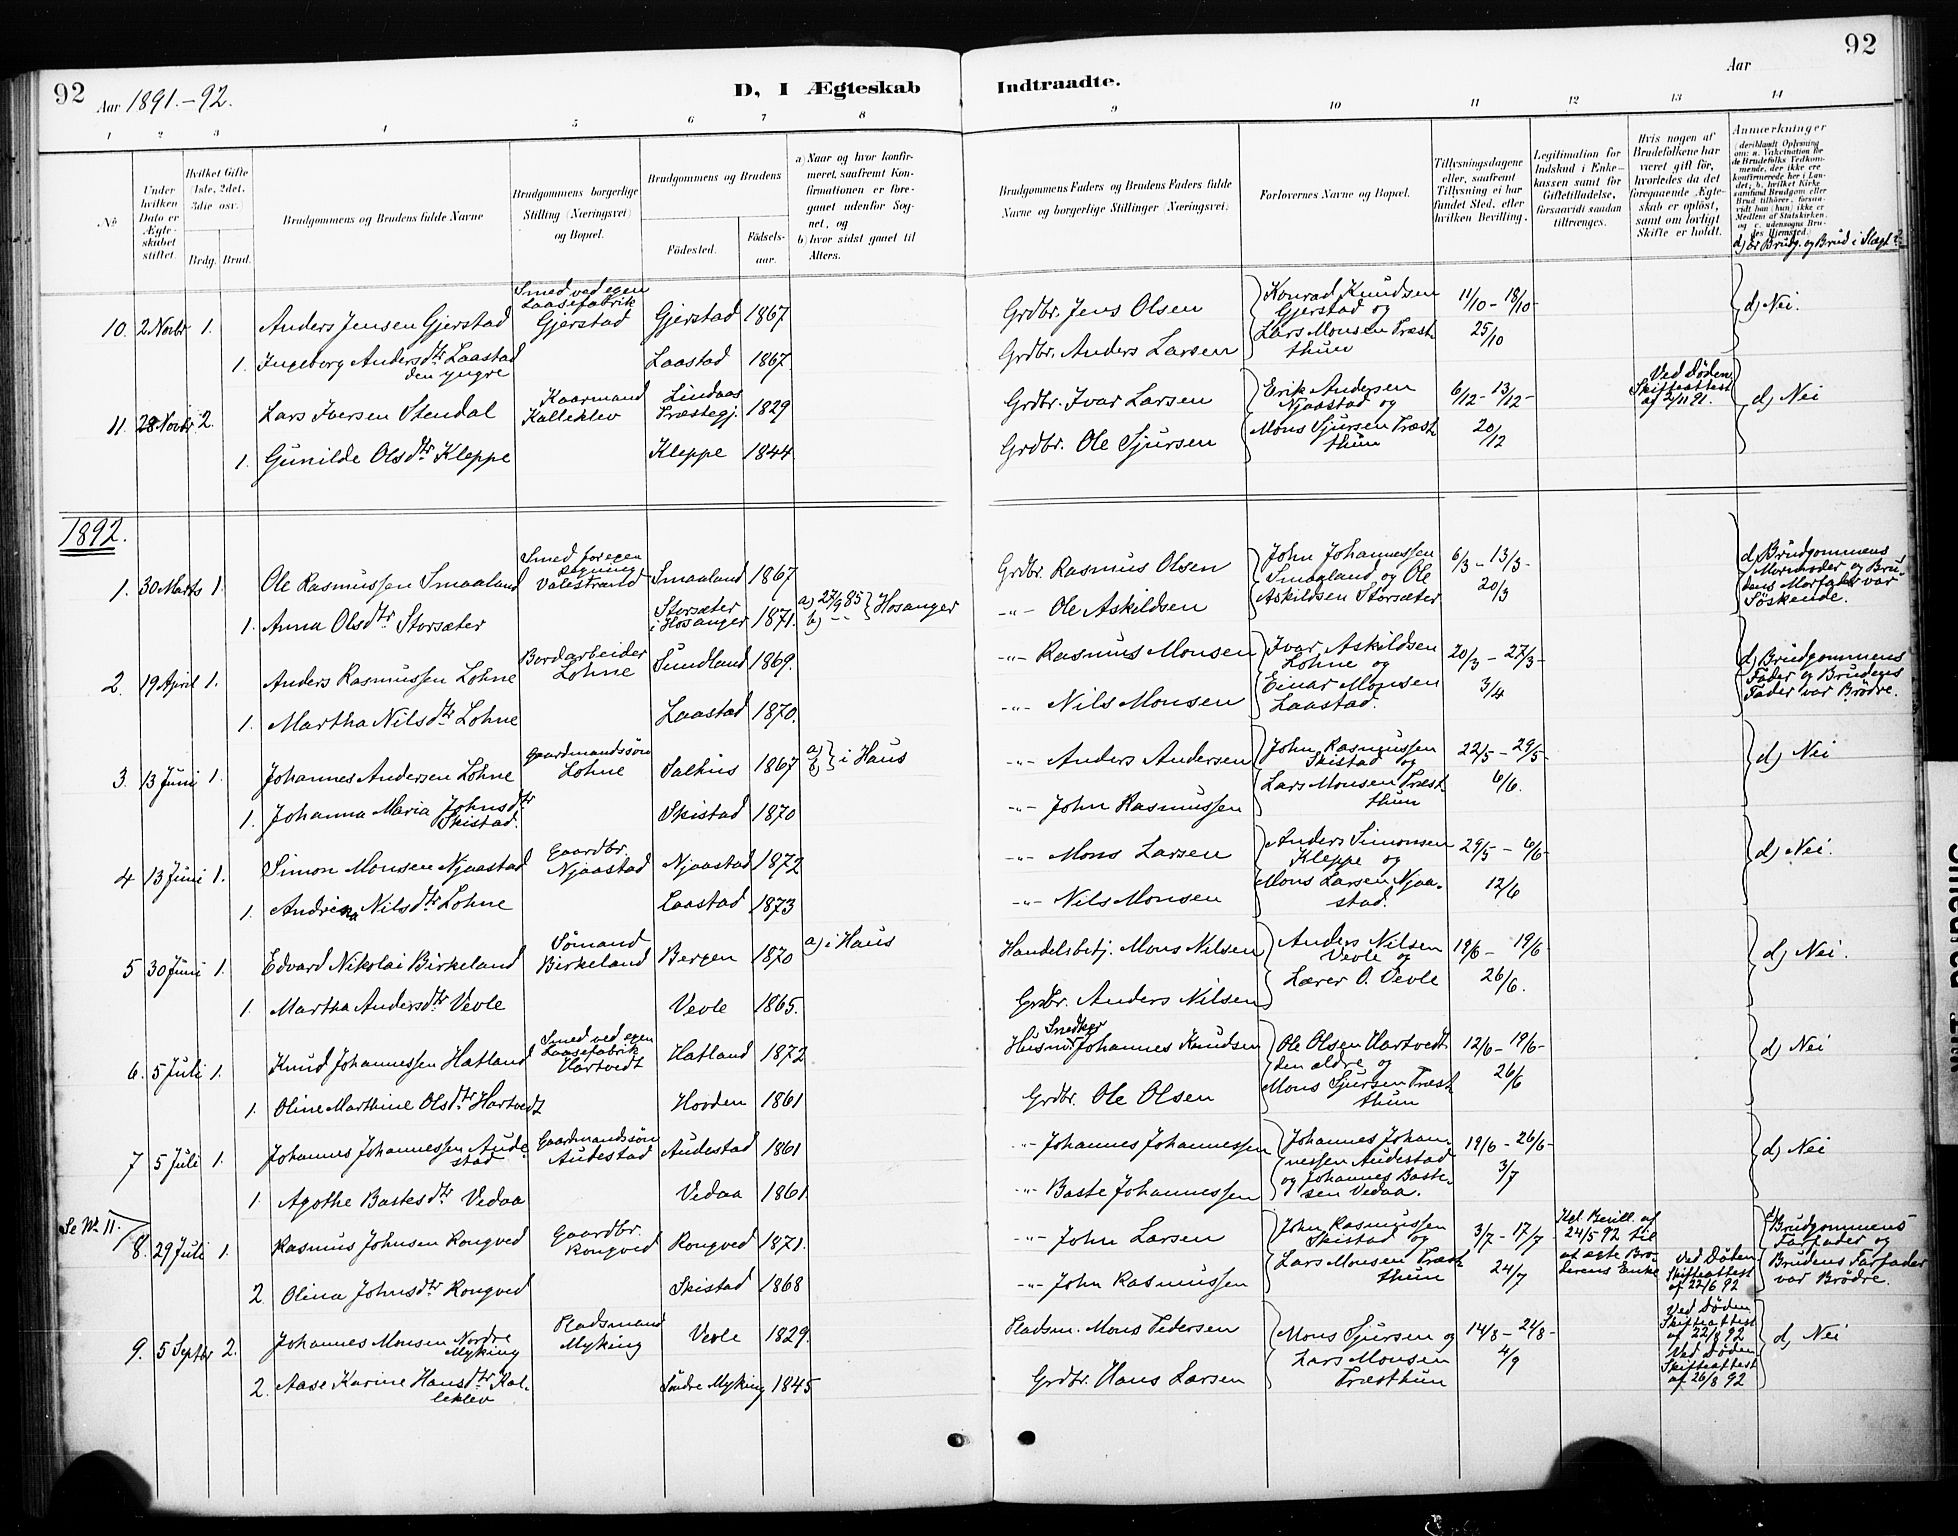 92
Aar 1891.-92.
D, I Ægteskab
Indtraadte.
Aar
92
1 2 3 4 5 6 7 8 9 10 11 12 13 14
No
Under hvilken Dato er Ægteskabet stiftet.
Hvilket Gifte (1ste, 2det, 3die osv.)
Brdg. Brud.
Brudgommens og Brudens fulde Navne
Brudgommens borgerlige Stilling (Næringsvei) og Bopæl.
Brudgommens og Brudens
Fødested.
Fødselsaar.
a) Naar og hvor konfirmeret, saafremt Konfirmationen er foregaaet udenfor Sognet, og
b) hvor sidst gaaet til Alters.
Brudgommens Faders og Brudens Faders fulde Navne og borgerlige Stillinger (Næringsvei).
Forlovernes Navne og Bopæl.
Tillysningsdagene eller, saafremt Tillysning ei har fundet Sted, efter hvilken Bevilling.
Legitimation for Indskud i Enkekassen samt for Giftetilladelse, forsaavidt saadan tiltrænges.
Hvis nogen af Brudefolkene har været gift før, hvorledes da det foregaaende Ægteskab er opløst, samt om lovligt Skifte er holdt.
Anmærkninger
(deriblandt Oplysning om: a. Vakcination for de Brudefolks Vedkommende, der ikke ere konfirmerede her i Landet; b. hvilket Kirkesamfund Brudgom eller Brud tilhører, forsaavidt han (hun) ikke er Medlem af Statskirken, og c. udensogns Brudes Hjemsted.)
d) Er Brudg. og Brud i Slægt?
10. 2 Novbr 1. Anders Jensen Gjerstad Smed ved egen Laasefabrik Gjerstad Gjerstad 1867 Grdbr. Jens Olsen Konrad Knudsen Gjerstad og 11/10 - 18/10 - d) Nei.
1. Ingeborg Andersdtr Laastad den yngre Laastad 1867 Grdbr. Anders Larsen Lars Monsen Træsthun 25/10
11. 28 Novbr 2. Lars Iversen Stendal Kaarmand Kalleklev Lindaas Præstegj. 1829 Grdbr. Ivar Larsen Erik Andersen Njaastad og 6/12 - 13/12 - Ved Døden Skifteattest af 2/11 91. d) Nei
1. Gunilde Olsdtr Kleppe Kleppe 1844 Grdbr. Ole Sjursen Mons Sjursen Træsthun 20/12
1892.
1. 30 Marts 1. Ole Rasmussen Smaaland Smed for egen Regning Valestrand Smaaland 1867 Grdbr. Rasmus Olsen John Johannessen Smaaland og Ole 6/3 - 13/3 - d) Brudgommens Mormoder og Brudens Morfader var Søskende.
1. Anna Olsdtr Storsæter Storsæter i Hosanger 1871. a) 27/9 85 b) -"- Hosanger -"- Ole Askildsen Askildsen Storsæter 20/3
2. 19 April 1. Anders Rasmussen Lohne Bordarbeider Lohne Sundland 1869. -"- Rasmus Monsen Ivar Askildsen Lohne og 20/3 - 27/3 - d) Brudgommens Fader og Brudens Fader var Brödre.
1. Martha Nilsdtr Lohne Laastad 1870. -"- Nils Monsen Einar Monsen Laastad. 3/4
3. 13 Juni 1. Johannes Andersen Lohne Gaardmandssön Lohne Salhus 1867 a) b) i Haus -"- Anders Andersen John Rasmussen Skistad og 22/5 - 29/5 d) Nei
1. Johanna Maria Johnsdtr Skistad. Skistad 1870 -"- John Rasmussen Lars Monsen Træsthun 6/6.
4 13 Juni 1. Simon Monsen Njaastad Gaardbr. Njaastad Njaastad 1872 -"- Mons Larsen Anders Simonsen Kleppe og 29/5 - 6/6 - d) Nei.
1. Andrina Nilsdtr Lohne Laastad 1873 -"- Nils Monsen Mons Larsen Njaastad. 12/6
5 30 Juni 1. Edvard Nikolai Birkeland Sömand Birkeland Bergen 1870 a) i Haus Handelsbetj. Mons Nilsen Anders Nilsen Vevle og 19/6 - 19/6 - d) Nei.
1. Martha Andersdtr Vevle Vevle 1865. Grdbr. Anders Nilsen Lærer O. Vevle 26/6.
6. 5 Juli 1. Knud Johannessen Hatland Smed ved egen Laasefabrik Hartvedt Hatland 1872 Husm. Snedker Johannes Knudsen Ole Olsen Hartvedt den ældre og 12/6 - 19/6 - d) Nei
1. Oline Marthine Olsdtr Hartvedt Hovden 1861 Grdbr. Ole Olsen Mons Sjursen Træsthun 26/6
7 5 Juli 1. Johannes Johannessen Audestad Gaardmandssön Audestad Audestad 1861 -"- Johannes Johannessen Johannes Johannessen Audestad 19/6 - 26/6 - d) Nei
1. Agothe Bastesdtr Vedaa Vedaa 1861. -"- Baste Johannessen og Johannes Bastesen Vedaa. 3/7
Se No 11.
8. 29 Juli 1. Rasmus Johnsen Rongved Gaardbr. Rongved Rongved 1871. -"- John Larsen John Rasmussen Skistad og 3/7 - 17/7 - Kgl. Bevill. af 24/5 92 til at ægte Broderens Enke d) Brudgommens Farfader og Brudens Farfader var Brödre.
2. Olina Johnsdtr Rongved Skistad 1868 -"- John Rasmussen Lars Monsen Træsthun 24/7 Ved Døden Skifteattest af 22/6 92
9. 5 Septbr 2. Johannes Monsen Nordre Myking Pladsmand Myking Vevle 1829. Pladsm. Mons Pedersen Mons Sjursen og 14/8 - 21/8 - Ved Døden Skifteattest af 22/8 92 d) Nei
2. Aase Karine Hansdtr Kalleklev Söndre Myking 1845 Grdbr. Hans Larsen Lars Monsen Træsthun 4/9 Ved Døden Skifteattest af 26/8 92